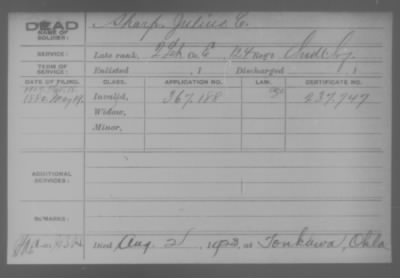 DEAD
NAME OF SOLDIER: Sharp, Julius C.
SERVICE: Late rank, Co. E, 124 Reg't Ind
TERM OF SERVICE: Enlisted , 1 Discharged , 1
DATE OF FILING. CLASS. APPLICATION NO. LAW. CERTIFICATE NO.
1880, May 19. Invalid, 367.188 237.747
Widow,
Minor,
ADDITIONAL SERVICES:
REMARKS:
Died Aug. 2, 1923, at Tonkawa, Okla